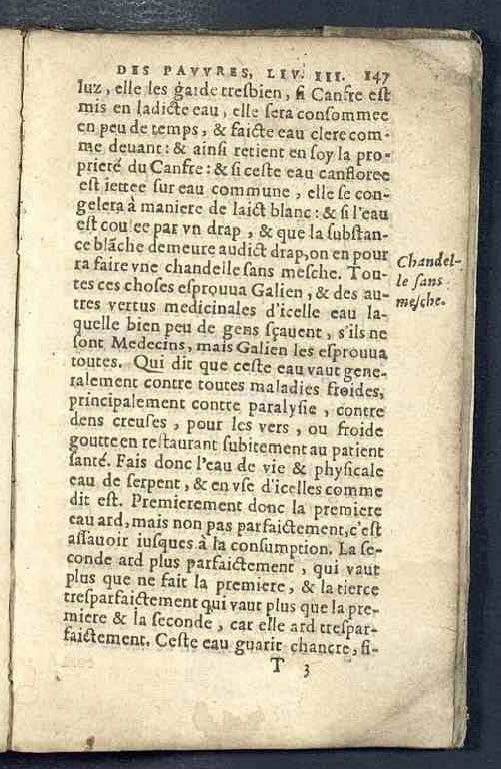 DES PAVVRES, LIV. III. 147
luz, elle les garde tresbien, si Canfre est
mis en ladicte eau, elle sera consommee
en peu de temps, & faicte eau clere com-
me deuant: & ainsi retient en soy la pro-
prieté du Canfre: & si ceste eau canfloree
est iettee sur eau commune, elle se con-
gelera à maniere de laict blanc: & si l'eau
est coulee par vn drap, & que la substan-
ce blãche demeure audict drap, on en pour
ra faire vne chandelle sans mesche. Tou-
tes ces choses esprouua Galien, & des au-
tres vertus medicinales d'icelle eau la-
quelle bien peu de gens sçauent, s'ils ne
sont Medecins, mais Galien les esprouua
toutes. Qui dit que ceste eau vaut gene-
ralement contre toutes maladies froides,
principalement contre paralysie, contre
dens creuses, pour les vers, ou froide
goutte en restaurant subitement au patient
santé. Fais donc l'eau de vie & physicale
eau de serpent, & en vse d'icelles comme
dit est. Premierement donc la premiere
eau ard, mais non pas parfaictement, c'est
assauoir iusques à la consumption. La se-
conde ard plus parfaictement, qui vaut
plus que ne fait la premiere, & la tierce
tresparfaictement qui vaut plus que la pre-
miere & la seconde, car elle ard trespar-
faictement. Ceste eau guarit chancre, fi-
T 3
Chandel-
le sans
mesche.